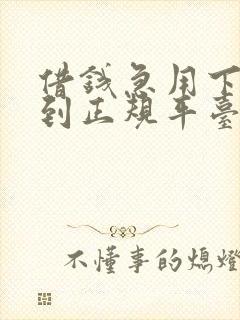 借錢急用下
到正規平臺
不懂事的熄燈